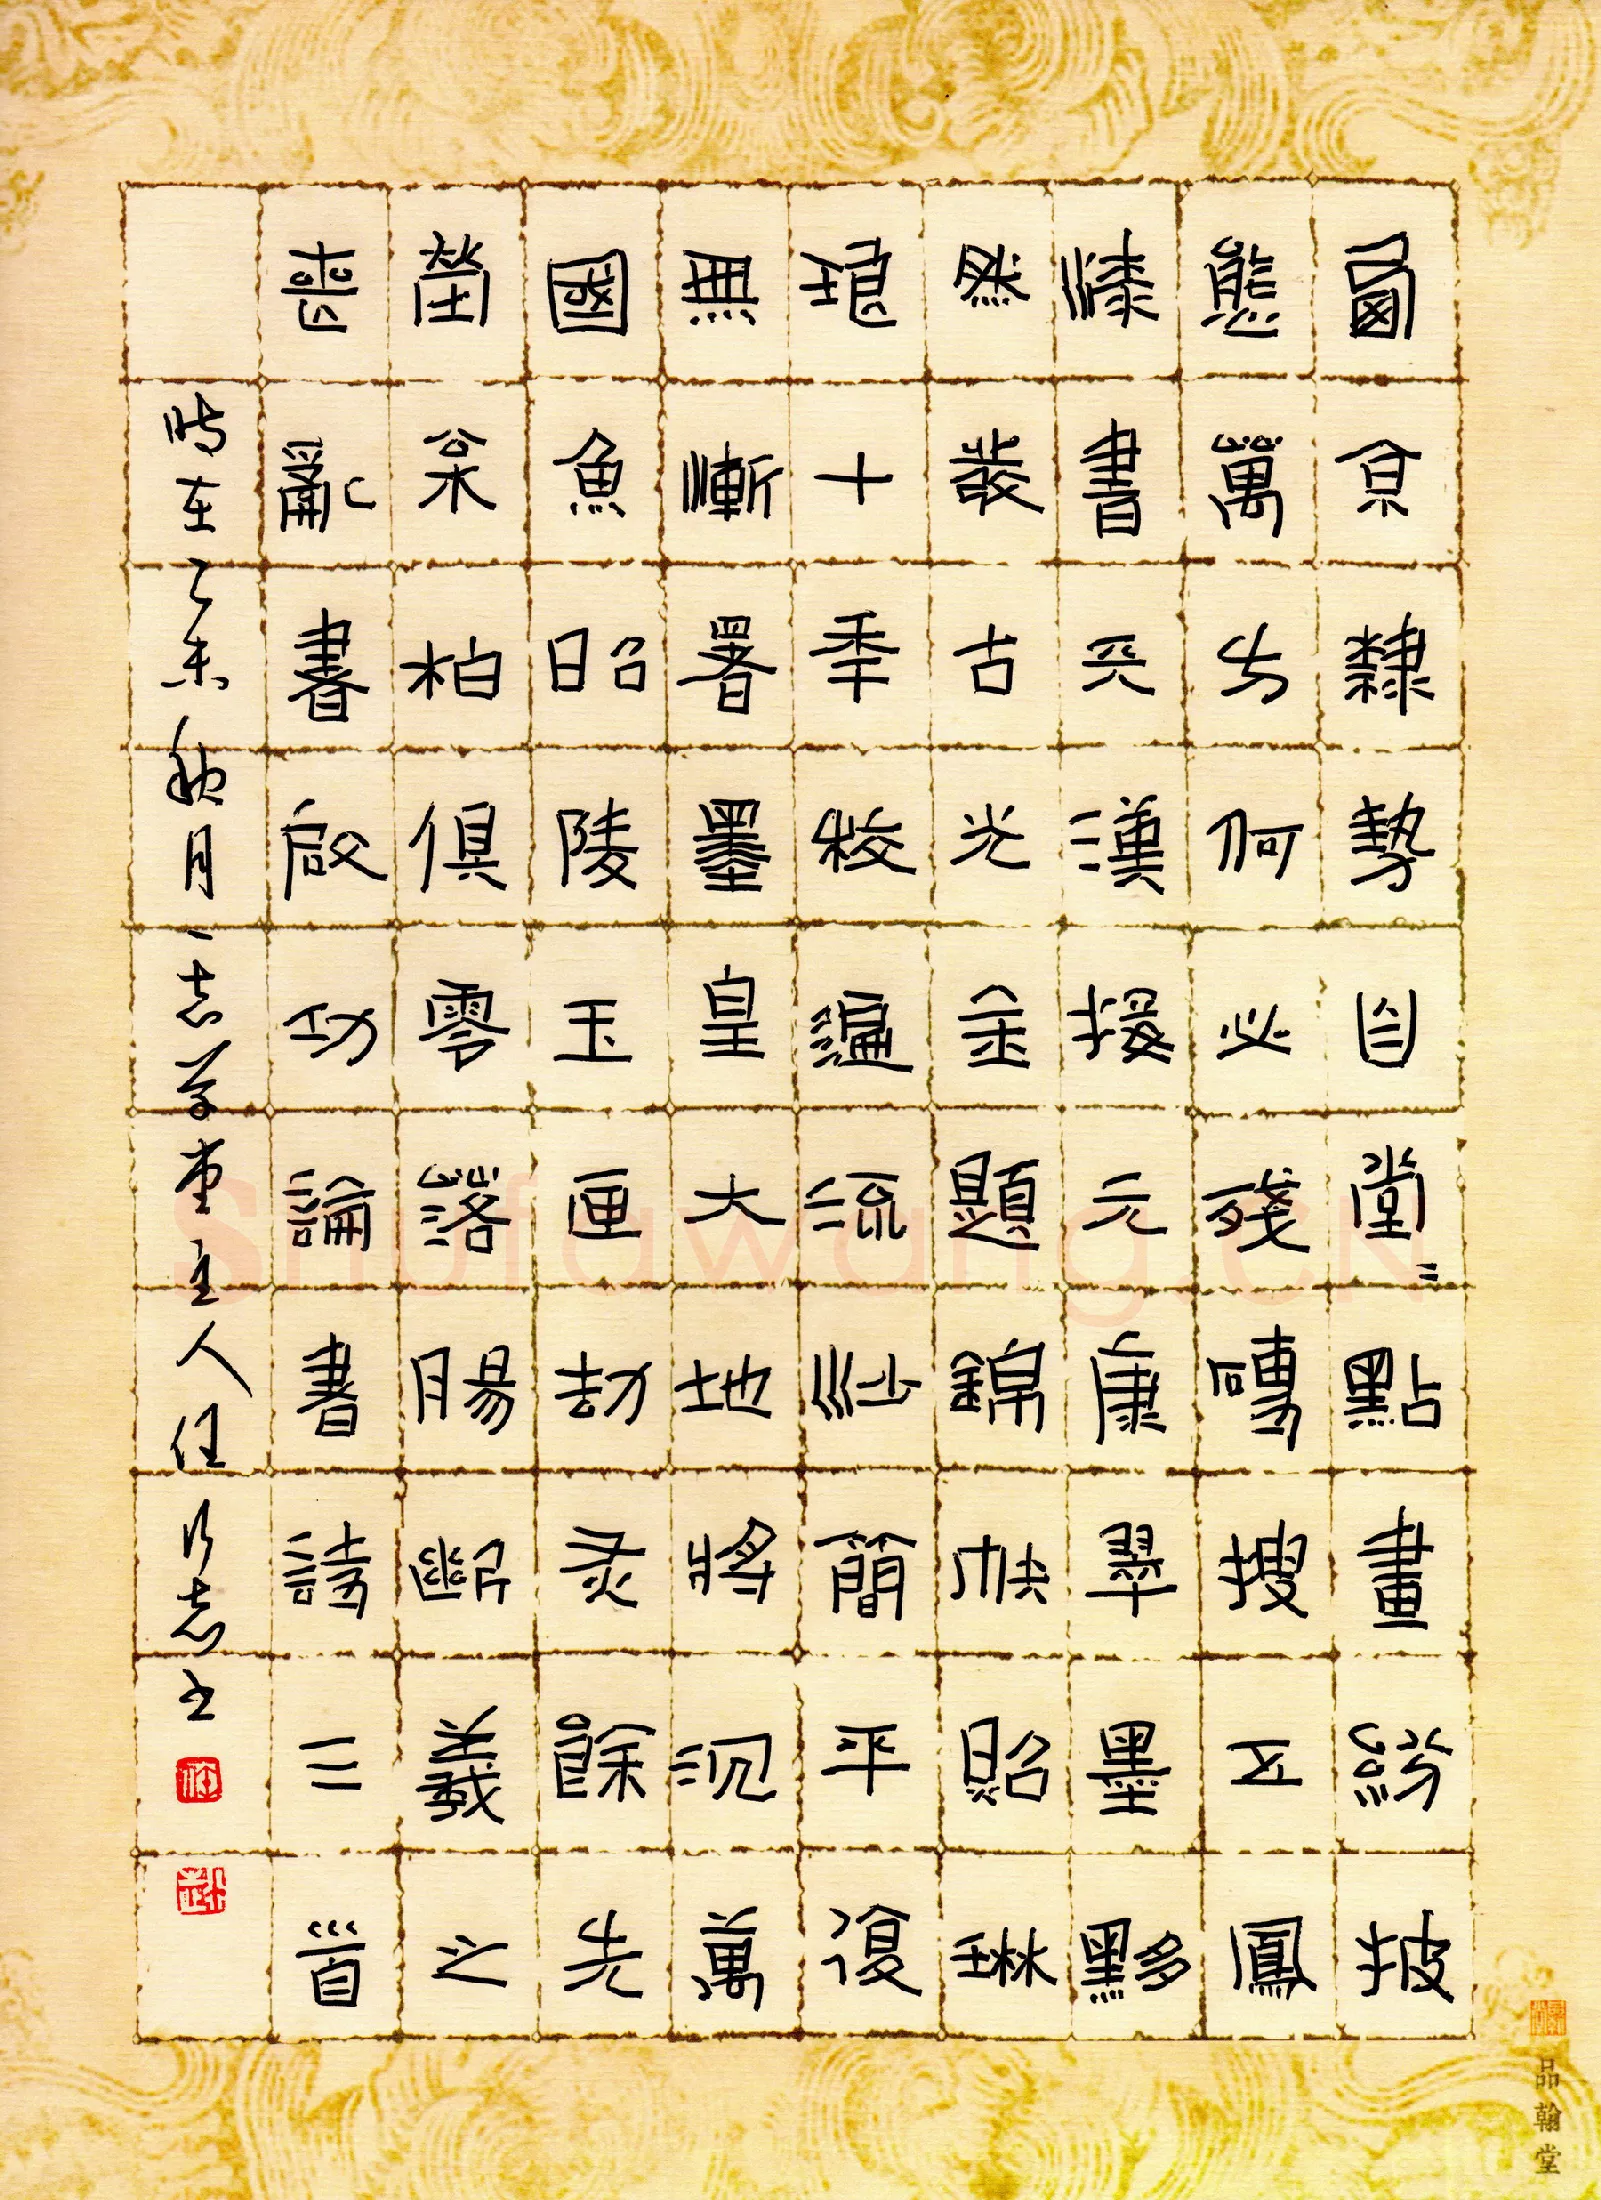 西京隸勢自堂〻點畫紛披
態萬方何必殘磚搜五鳳
漆書天漢接元康翠墨黟
然發古光金題錦帙照琳
琅十年校遍流沙簡平復
無慚署墨皇大地將沉萬
國魚昭陵玉匣劫灰餘先
塋松柏俱零落腸斷羲之
喪亂書啟功論書詩三首
時在乙未秋月一志草堂主人任志书
品翰堂